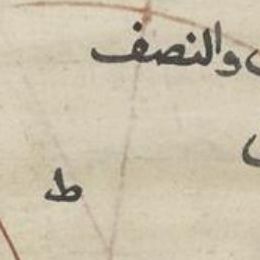 والنصف
ط